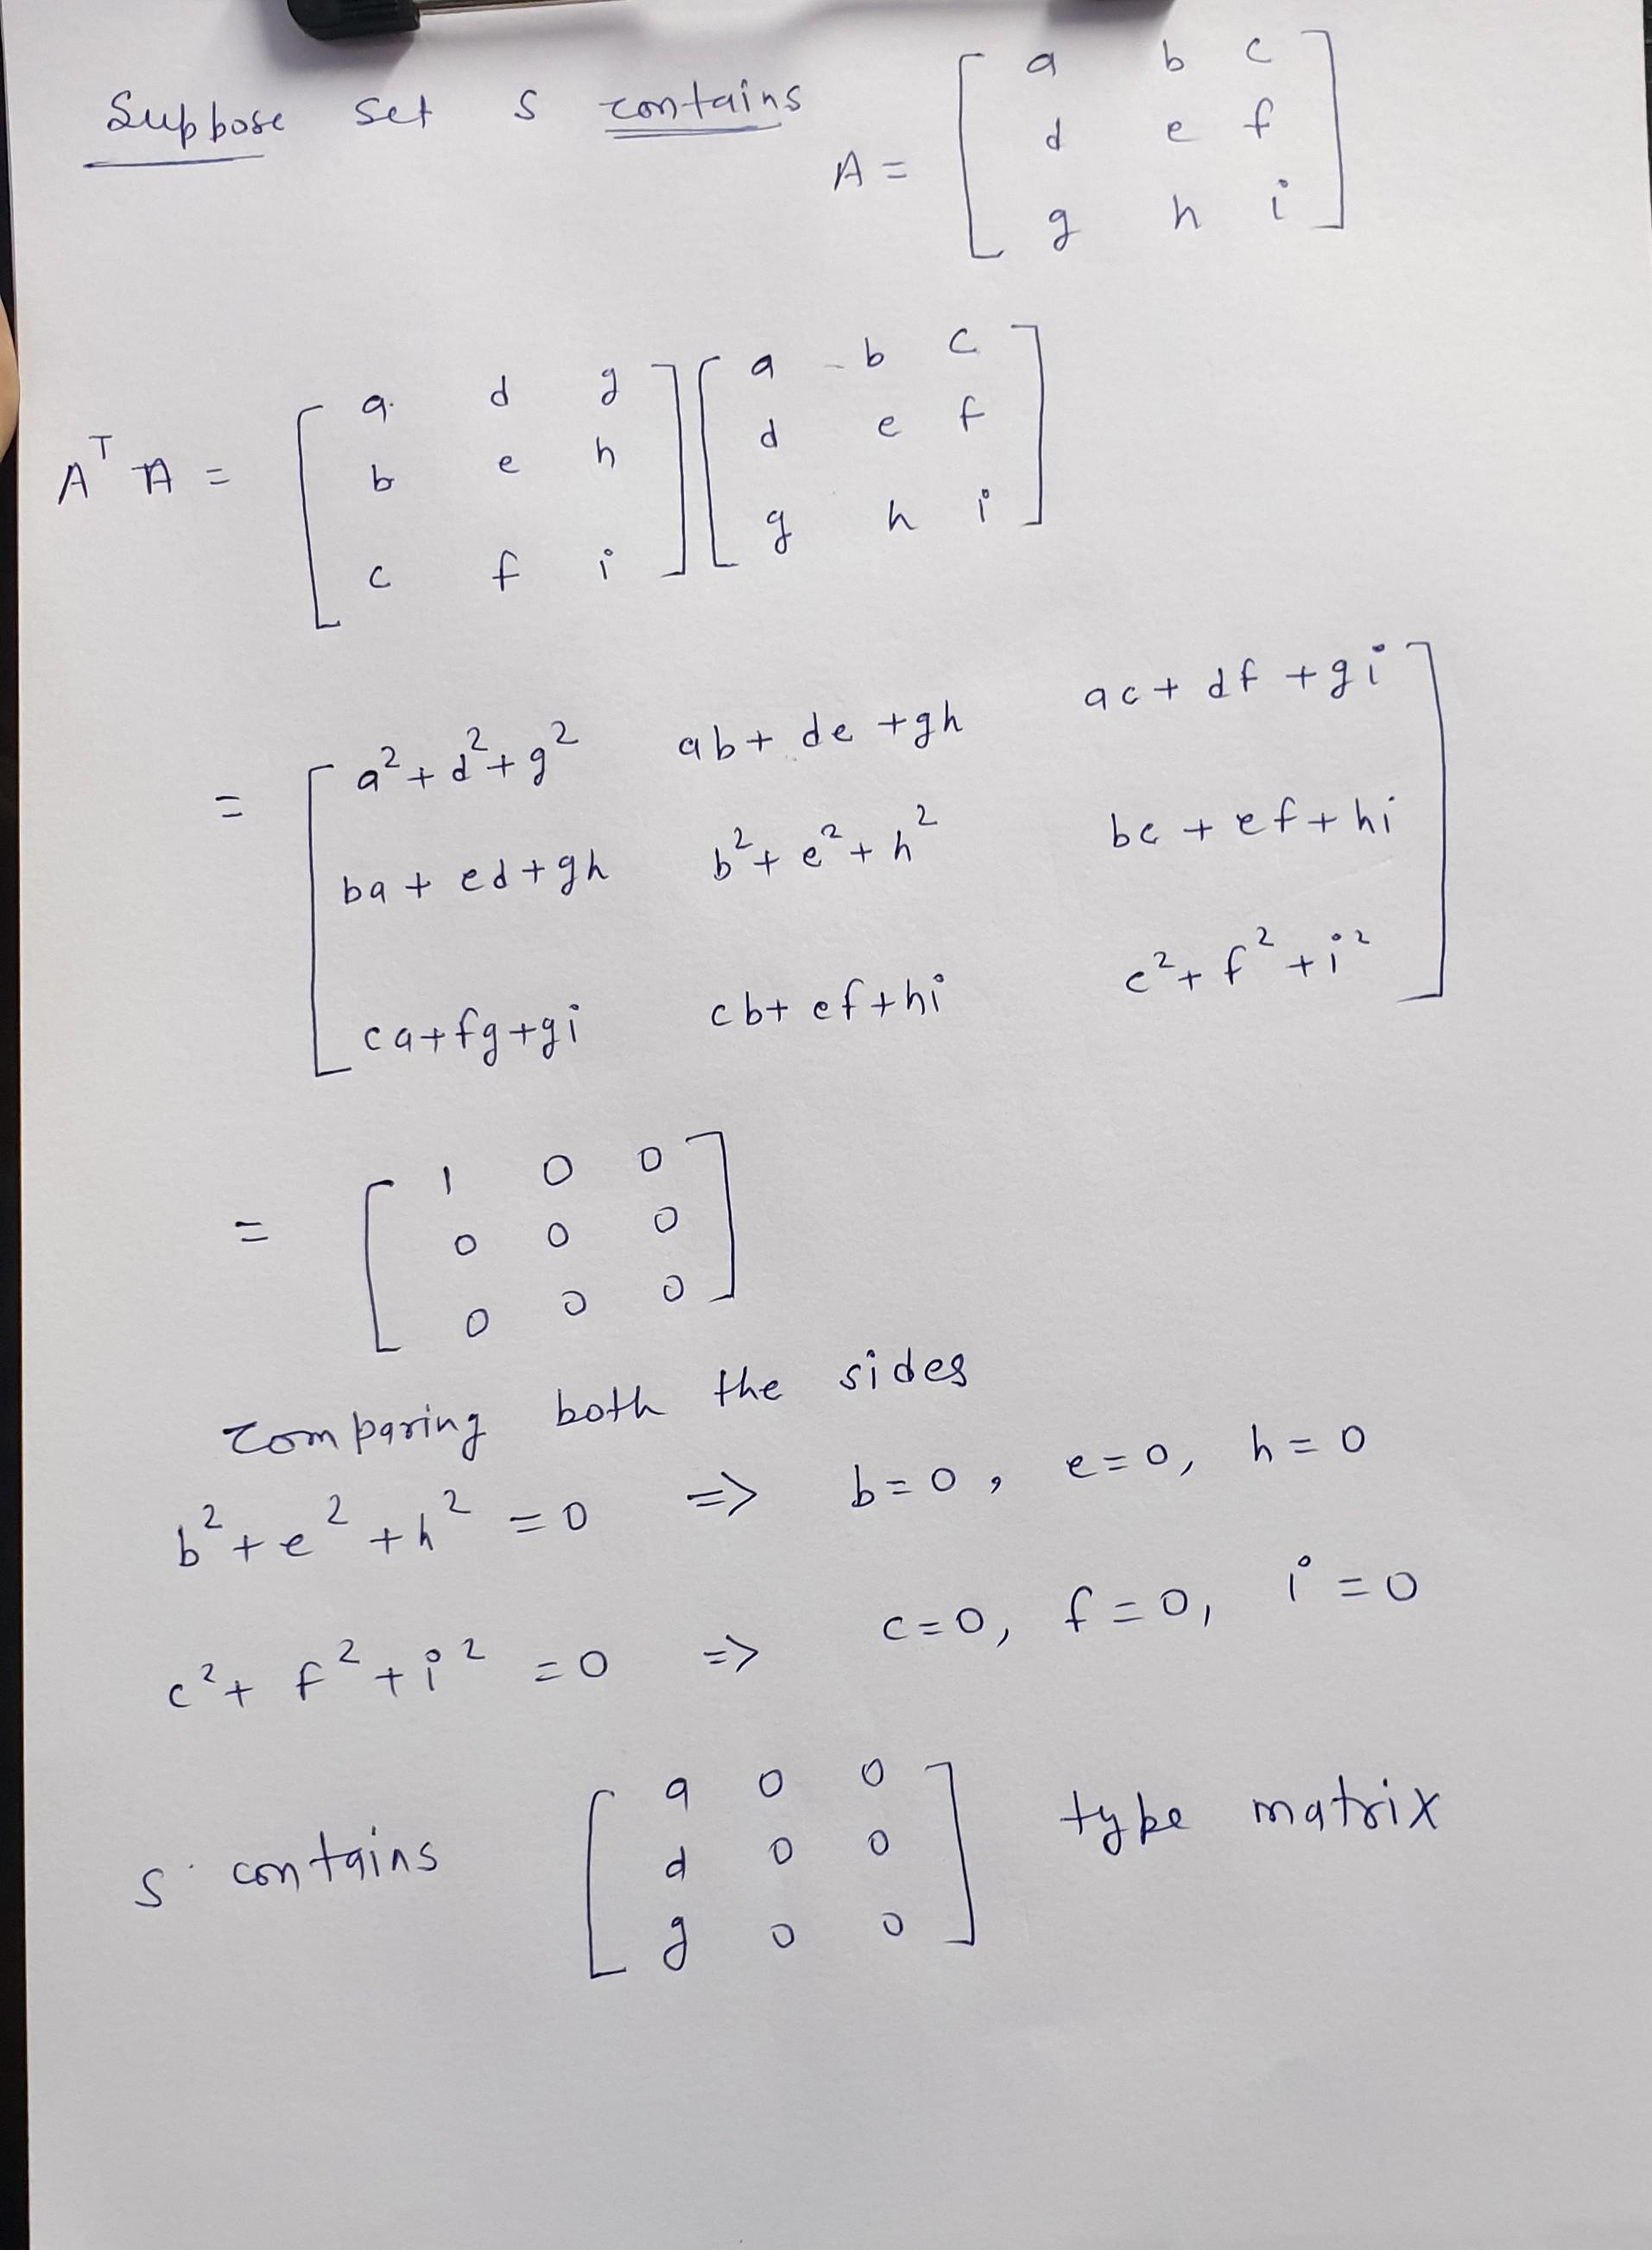 Suppose set S contains A = [ a b c
d e f
g h i ]
Aᵀ A = [ a d g
b e h
c f i ] [ a b c
d e f
g h i ]
= [ a² + d² + g² ab + de + gh ac + df + gi
ba + ed + gh b² + e² + h² bc + ef + hi
ca + fg + gi cb + ef + hi c² + f² + i² ]
= [ 1 0 0
0 0 0
0 0 0 ]
Comparing both the sides
b² + e² + h² = 0 => b = 0, e = 0, h = 0
c² + f² + i² = 0 => c = 0, f = 0, i = 0
S contains [ a 0 0
d 0 0
g 0 0 ] type matrix